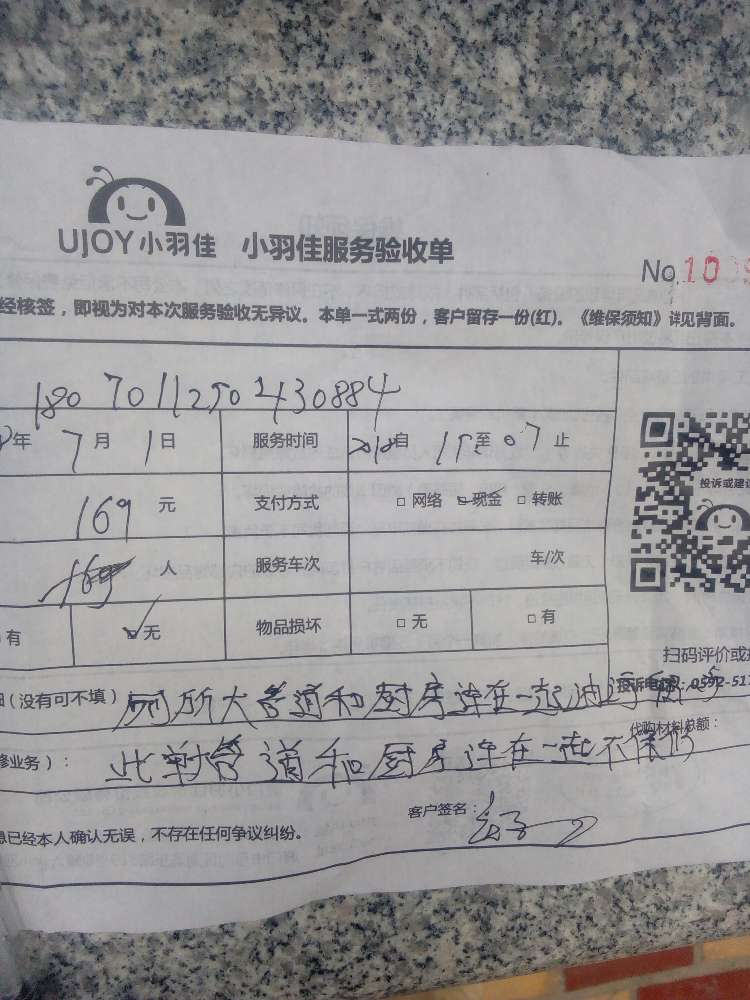 UJOY小羽佳 小羽佳服务验收单
No.100
经核签，即视为对本次服务验收无异议。本单一式两份，客户留存一份(红)。《维保须知》详见背面。
180701125021430884
年 7 月 1 日 服务时间 自 至 止
169 元 支付方式 □ 网络 □ 现金 □ 转账
人 服务车次 车/次
有 ☑ 无 物品损坏 □ 无 □ 有
投诉或建议
扫码评价或
(没有可不填) 厕所大管道和厨房连在一起
投诉电话：0592-51
代购材料总额：
修业务）： 此单管道和厨房连在一起不保修
客户签名：
息已经本人确认无误，不存在任何争议纠纷。